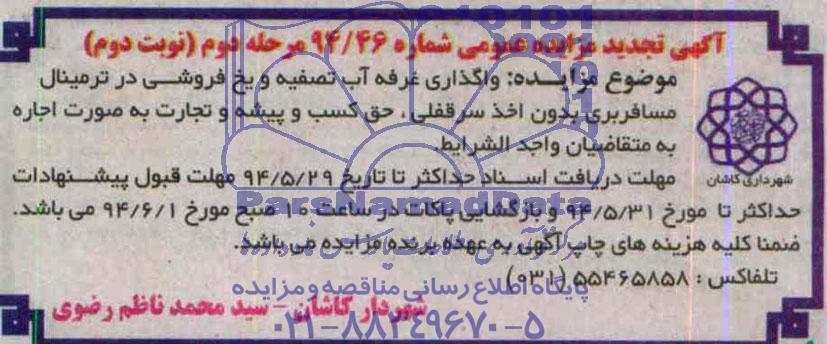 آگهی تجدید مزایده عمومی شماره ۹۴/۴۶ مرحله دوم (نوبت دوم)
موضوع مزایده: واگذاری غرفه آب تصفیه و یخ فروشی در ترمینال
مسافربری بدون اخذ سرقفلی، حق کسب و پیشه و تجارت به صورت اجاره
به متقاضیان واجد الشرایط.
مهلت دریافت اسناد حداکثر تا تاریخ ۹۴/۵/۲۹ مهلت قبول پیشنهادات
حداکثر تا مورخ ۹۴/۵/۳۱ و بازگشایی پاکات در ساعت ۱۰ صبح مورخ ۹۴/۶/۱ می باشد.
ضمنا کلیه هزینه های چاپ آگهی به عهده برنده مزایده می باشد.
تلفاکس: ۵۵۴۶۵۸۵۸ (۰۳۱)
شهردار کاشان - سید محمد ناظم رضوی
شهرداری کاشان
ParsNamadData
پایگاه اطلاع رسانی مناقصه و مزایده
۰۲۱-۸۸۳۴۹۶۷۰-۵